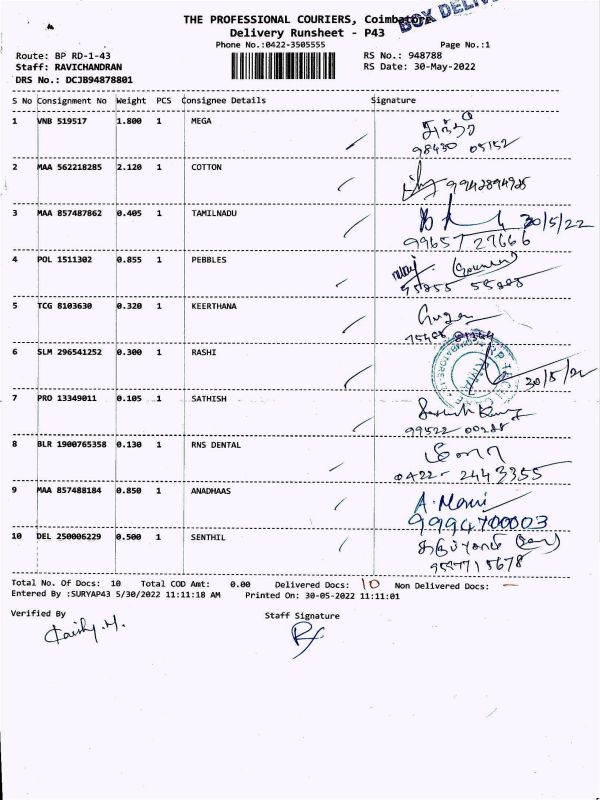 THE PROFESSIONAL COURIERS, Coimbatore
BOX
Delivery Runsheet - P43
Phone No.:0422-3505555
Page No.:1
Route: BP RD-1-43
RS No.: 948788
Staff: RAVICHANDRAN
RS Date: 30-May-2022
DRS No.: DCJB94878801
S No Consignment No Weight PCS Consignee Details Signature
1 VNB 519517 1.800 1 MEGA
98430 05152
2 MAA 562218285 2.120 1 COTTON
9942894925
3 MAA 857487862 0.405 1 TAMILNADU
30/5/22
99657 27666
4 POL 1511302 0.855 1 PEBBLES
5 TCG 8103630 0.320 1 KEERTHANA
6 SLM 296541252 0.300 1 RASHI
30/5/22
7 PRO 13349011 0.105 1 SATHISH
8 BLR 1900765358 0.130 1 RNS DENTAL
0422-2443355
9 MAA 857488184 0.850 1 ANADHAAS
A. Mani
9994700003
10 DEL 250006229 0.500 1 SENTHIL
9597715678
Total No. Of Docs: 10 Total COD Amt: 0.00 Delivered Docs: 10 Non Delivered Docs: -
Entered By :SURYAP43 5/30/2022 11:11:18 AM Printed On: 30-05-2022 11:11:01
Verified By
Staff Signature